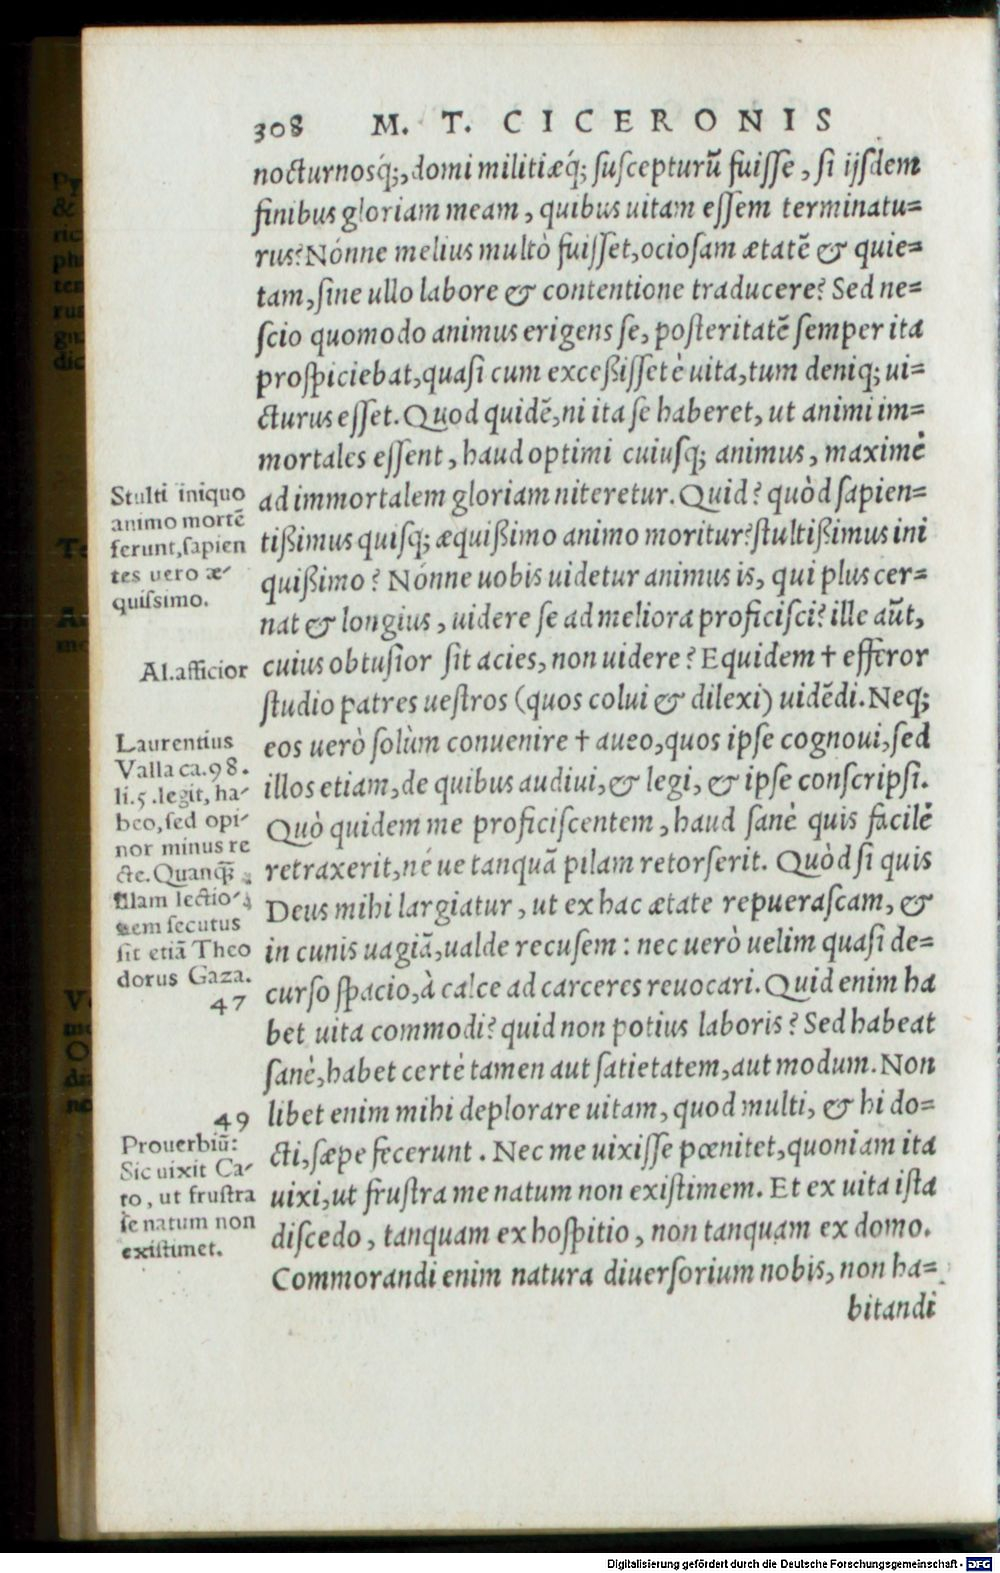 308 M. T. CICERONIS
nocturnosq́;, domi militiæq́; ſuſcepturū fuiſſe, ſi ijſdem
finibus gloriam meam, quibus uitam eſſem terminatu=
rus? Nónne melius multò fuiſſet, ocioſam ætatē & quie=
tam, ſine ullo labore & contentione traducere? Sed ne=
ſcio quomodo animus erigens ſe, poſteritatē ſemper ita
proſpiciebat, quaſi cum exceßiſſet è uita, tum deniq; ui=
cturus eſſet. Quod quidē, ni ita ſe haberet, ut animi im=
mortales eſſent, haud optimi cuiuſq; animus, maximè
ad immortalem gloriam niteretur. Quid? quòd ſapien=
tißimus quiſq; æquißimo animo moritur? ſtultißimus ini
quißimo? Nónne uobis uidetur animus is, qui plus cer=
nat & longius, uidere ſe ad meliora proficiſci? ille aūt,
cuius obtuſior ſit acies, non uidere? Equidem † efferor
ſtudio patres ueſtros (quos colui & dilexi) uidēdi. Neq;
eos uerò ſolùm conuenire † aueo, quos ipſe cognoui, ſed
illos etiam, de quibus audiui, & legi, & ipſe conſcripſi.
Quò quidem me proficiſcentem, haud ſanè quis facilè
retraxerit, né ue tanquā pilam retorſerit. Quòd ſi quis
Deus mihi largiatur, ut ex hac ætate repueraſcam, &
in cunis uagiā, ualde recuſem: nec uerò uelim quaſi de=
curſo ſpacio, à calce ad carceres reuocari. Quid enim ha
bet uita commodi? quid non potius laboris? Sed habeat
ſanè, habet certè tamen aut ſatietatem, aut modum. Non
libet enim mihi deplorare uitam, quod multi, & hi do=
cti, ſæpe fecerunt. Nec me uixiſſe pœnitet, quoniam ita
uixi, ut fruſtra me natum non exiſtimem. Et ex uita iſta
diſcedo, tanquam ex hoſpitio, non tanquam ex domo.
Commorandi enim natura diuerſorium nobis, non ha=
bitandi
Stulti iniquo
animo mortē
ferunt, ſapien
tes uero æ-
quiſsimo.
Al. afficior
Laurentius
Valla ca. 98.
li. 5. legit, ha-
beo, ſed opi-
nor minus re
cte. Quanq̄
illam lectio-
nem ſecutus
ſit etiā Theo
dorus Gaza.
47
49
Prouerbiū:
Sic uixit Ca-
to, ut fruſtra
ſe natum non
exiſtimet.
Digitalisierung gefördert durch die Deutsche Forschungsgemeinschaft - DFG